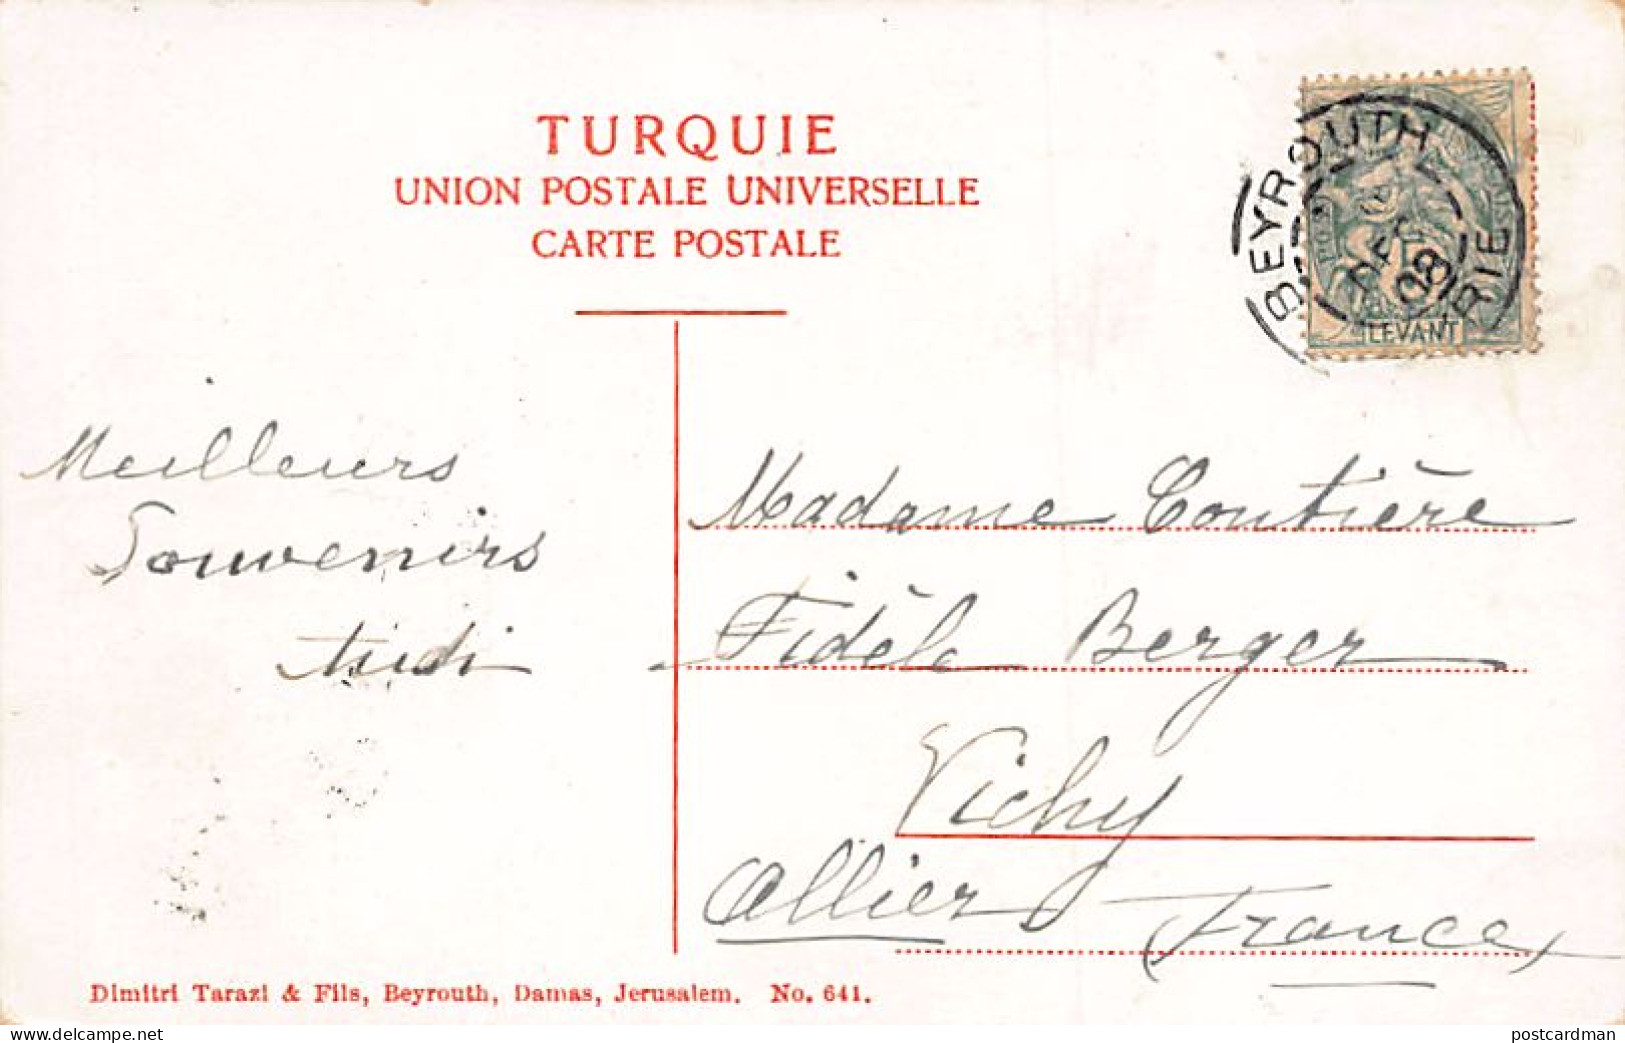 TURQUIE
UNION POSTALE UNIVERSELLE
CARTE POSTALE
BEYROUTH
DEC
08
RIE
LEVANT
Meilleurs
Souvenirs
Madame Coutière
Fidèle Berger
Vichy
Allier France
Dimitri Tarazi & Fils, Beyrouth, Damas, Jerusalem. No. 641.
postcardman